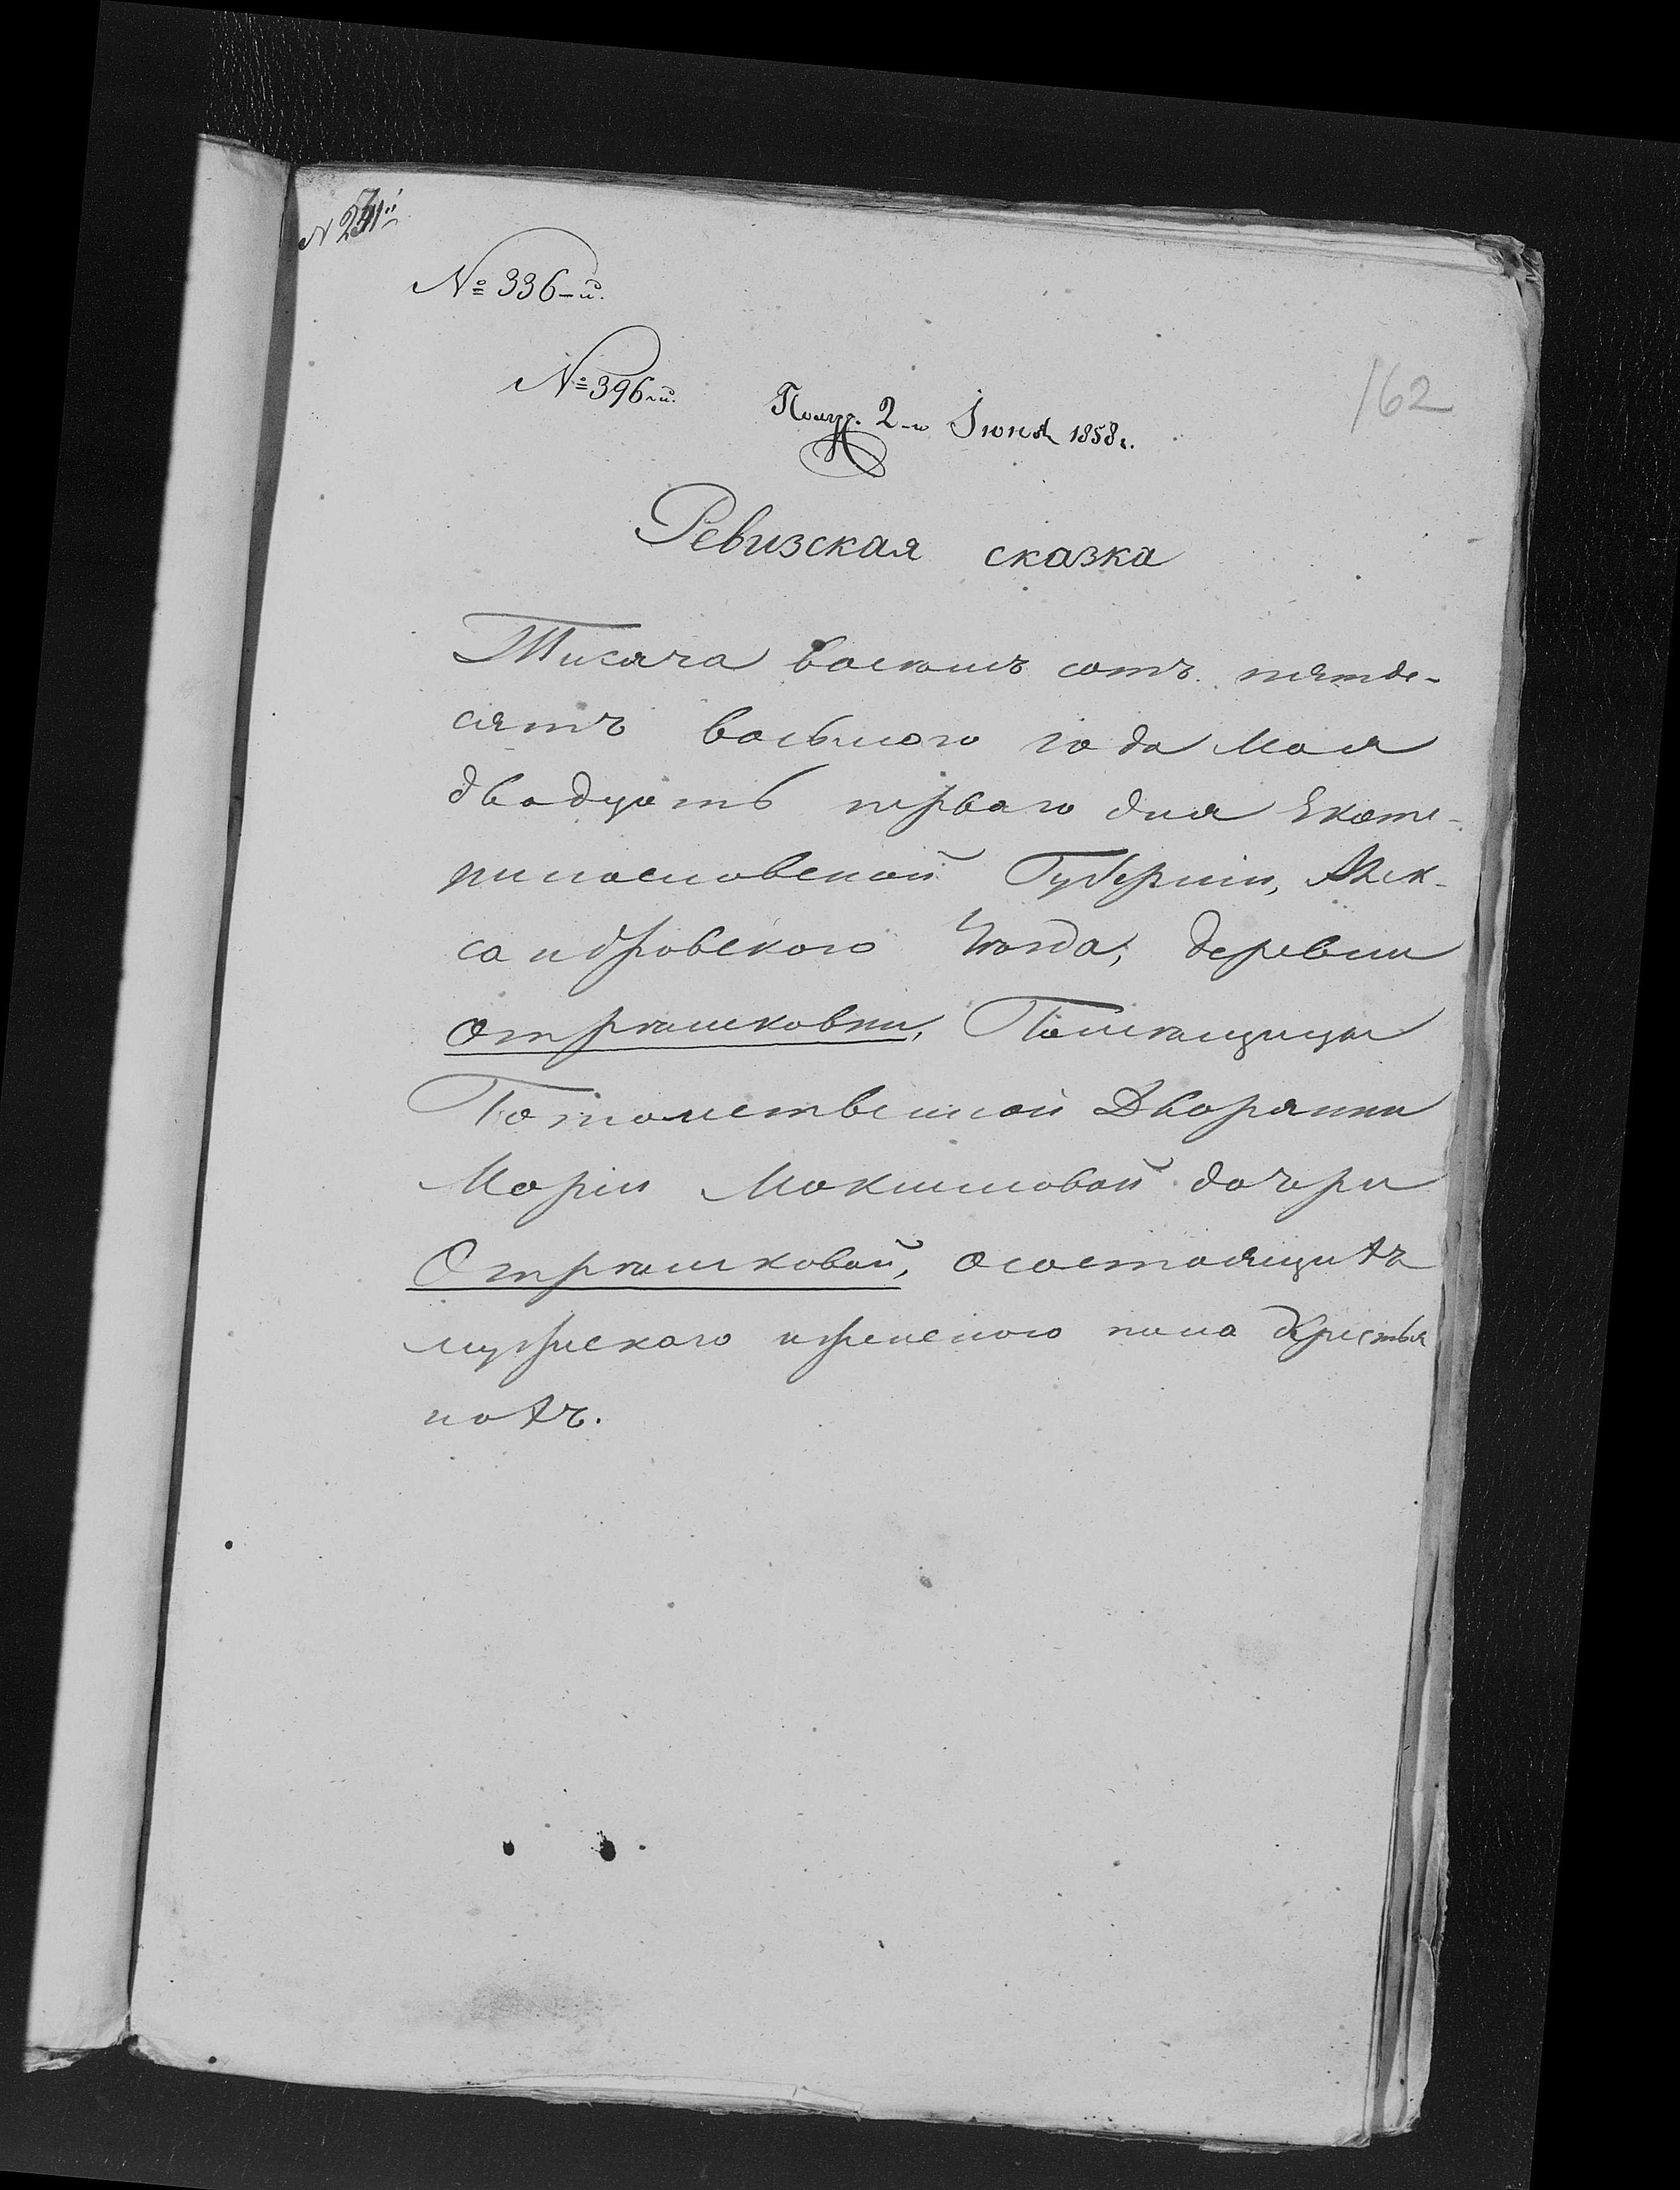 № 336-й.
№ 396-й.
Получ. 2-го Іюня 1858 г.
162
Ревизская сказка
Тисяча восемъ сотъ пятде-
сятъ восьмого года Мая
двадцать перваго дня Екате-
ринославской Губерніи, Алек-
сандровского Уѣзда, деревни
Отрѣшковки, Помѣщицы
Потомственной Дворянки
Маріи Максимовой дочери
Отрѣшковой, о состоящихъ
мужескаго и женского пола Крестья
нахъ.